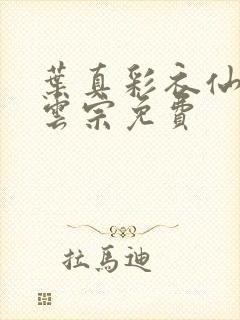 葉真彩衣仙
雲宗免費
拉馬迪